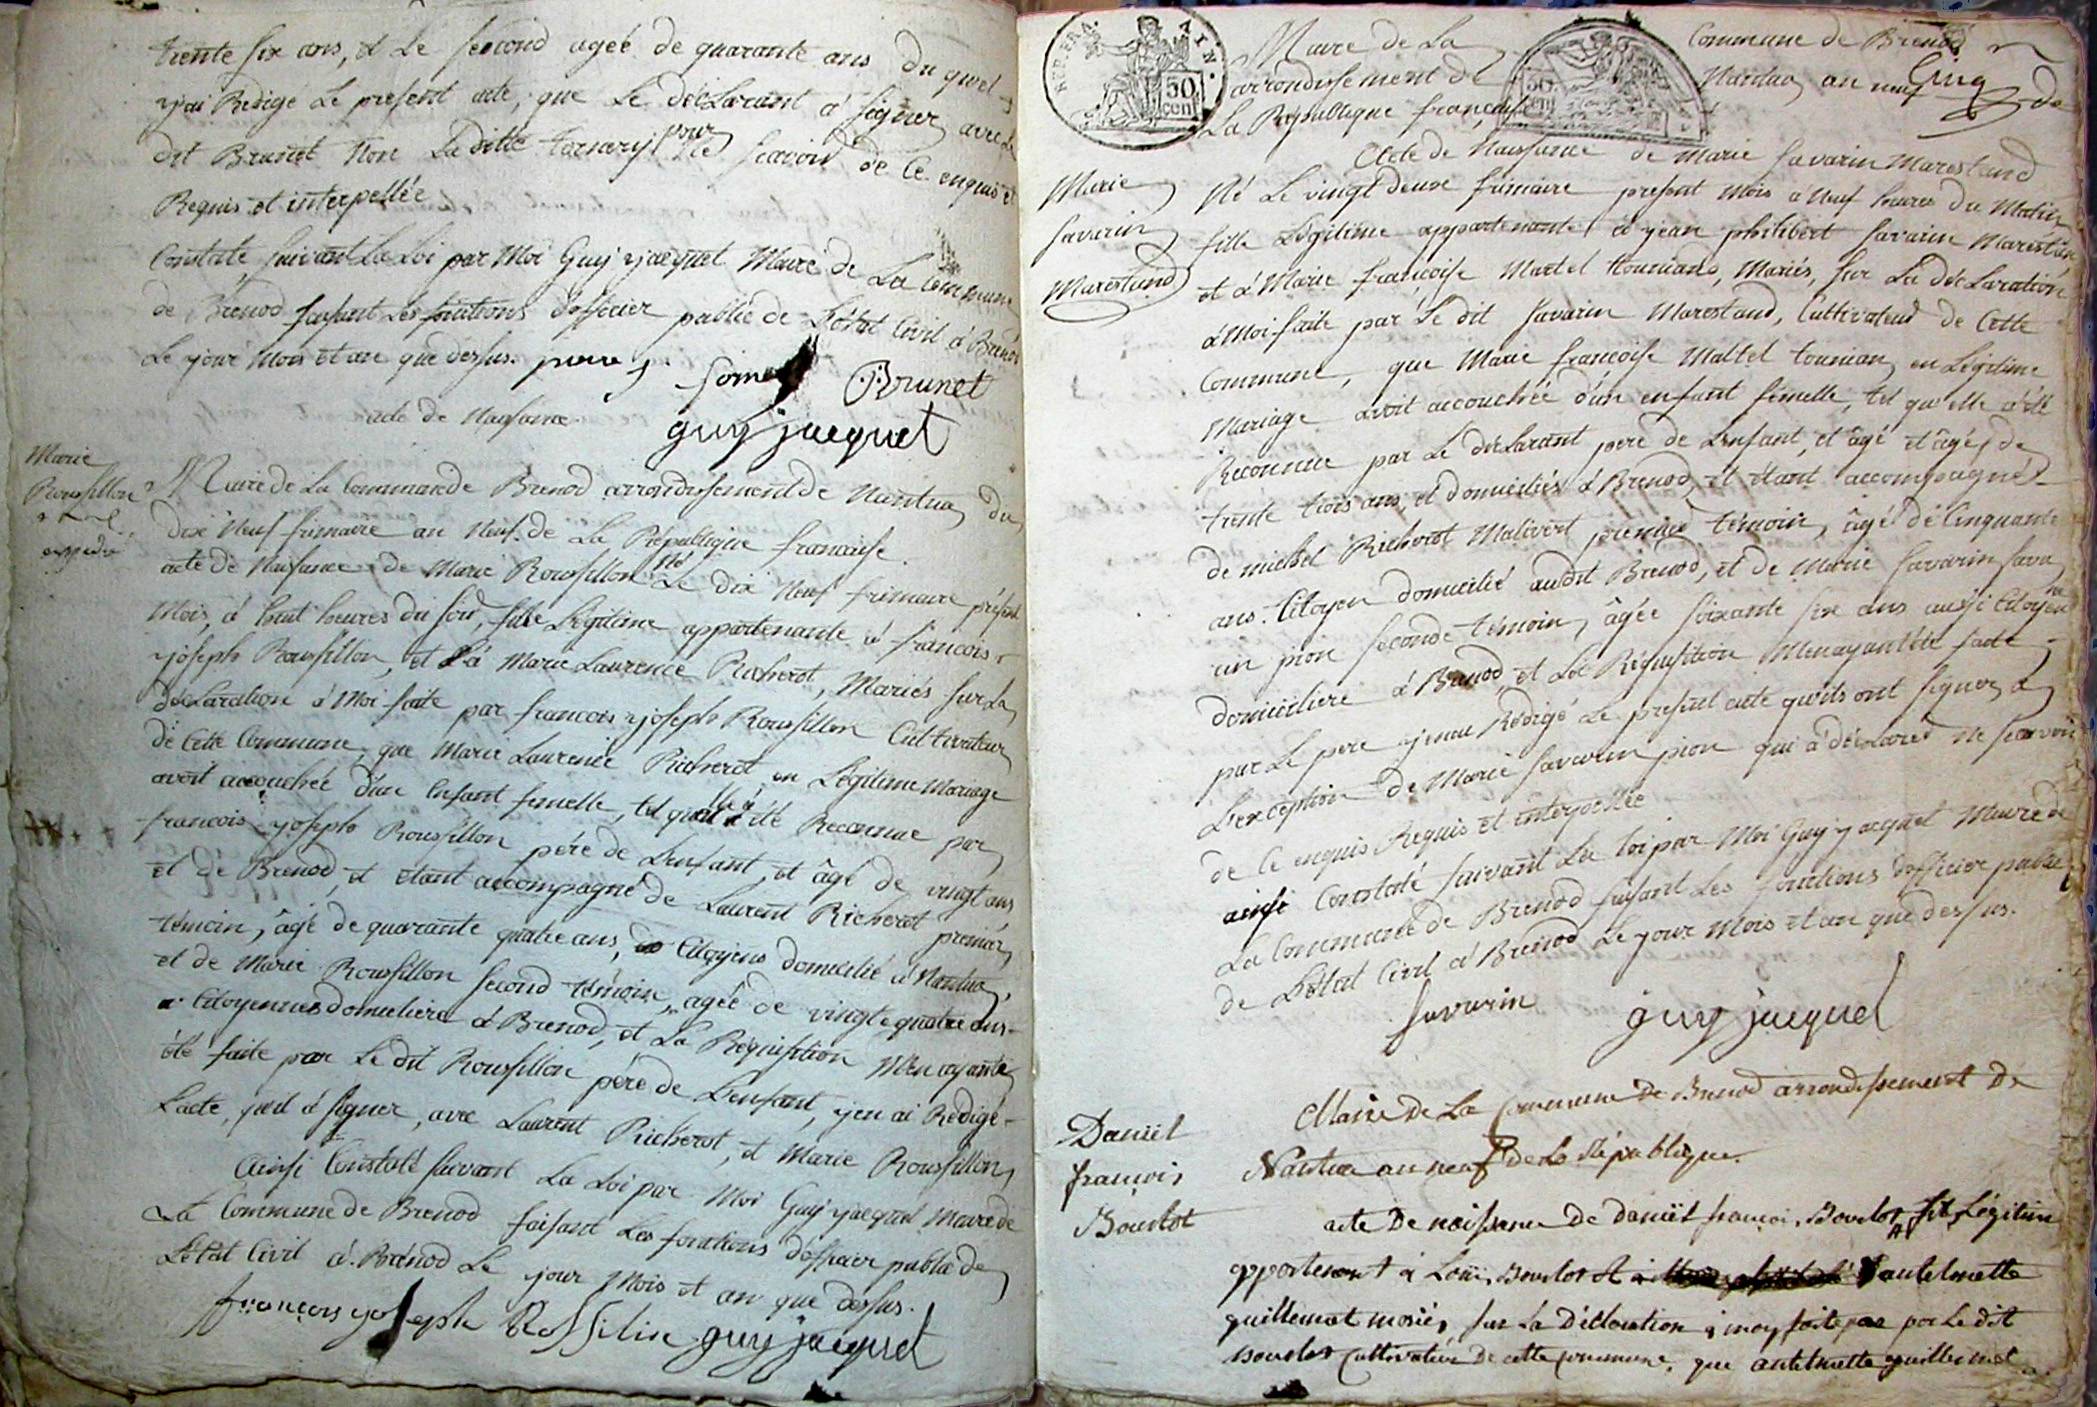 trente six ans, et le second ageé de quarante ans du quel
j'ai Redigé Le present acte, que Le déclarant á signer avec Le
dit Brunet non La ditte tornery pour ne scavoir de Ce enquis et
Requis et interpellée
Constaté suivant La Loi par Moi Guy jacquet Maire de La Commune
de Brenod faisant Les fonctions d'officier public de L'état Civil á Brenod
Le jour Mois et an que dessus.
Brunet
guy jacquet
acte de Naissance
Marie
Roussillon
expedié
Maire de La Commune de Brenod arrondissement de Nantua du
dix Neuf frimaire an Neuf de La République francaise
acte de Naissance de Marie Roussillon Né Le dix Neuf frimaire présent
Mois, á huit heures du soir, fille Légitime appartenante á francois
joseph Roussillon, et á Marie Laurence Richerot, Mariés sur La
déclaration á Moi faite par francois joseph Roussillon Cultivateur
de Cette Commune, que Marie Laurence Richerot en Légitime Mariage
avoit accouchée d'un Enfant femelle, tel qu'elle á été Reconnue par
francois joseph Roussillon pére de L'enfant, et âgé de vingt ans
et de Brenod, et étant accompagné de Laurent Richerot premier
témoin, âgé de quarante quatre ans, Citoyens domicilié á Nantua,
et de Marie Roussillon second témoin, agée de vingt quatre ans
Citoyennes domiciliere á Brenod, et La Réquisition M'en ayante
été faite par Le dit Roussillon pére de L'enfant, j'en ai Redigé
L'acte, quil á signer, avec Laurent Richerot, et Marie Roussillon
Ainsi Constaté suivant La Loi par Moi Guy jacquet Maire de
La Commune de Brenod faisant Les fonctions d'officier public de
L'état Civil á Brenod Le jour Mois et an que dessus.
françois joseph Rossilin guy jacquet
REP. FRA. AIN.
50 cen
Maire de La Commune de Brenod
arrondissement de Nantua an neuf Cinq de
La République française
Marie
Savarin
Marestand
Acte de Naissance de Marie Savarin Marestand
Né Le vingt deux frimaire present Mois a Neuf heures du Matin
fille Légitime appartenante á jean philibert Savarin Marestan
et á Marie françoise Martel tournians, Mariés, sur La déclaration
á Moi faite par Le dit Savarin Marestand, Cultivateur de Cette
Commune, que Marie françoise Maltel tournian en Légitime
Mariage avoit accouchée d'un enfant femelle, tel qu'elle á été
Reconnue par Le déclarant pere de L'enfant, et âgé et âgés de
trente trois ans, et domiciliés á Brenod, et étant accompagné
de michel Richerot Malivert premier témoin, âgé de Cinquante
ans. Citoyen domicilié audit Brenod, et de Marie Savarin Sava
rin pion seconde témoin, âgée soixante six ans aussi Citoyenne
domiciliere á Brenod, et La Réquisition M'en ayant été faite
par Le pere j'en ai Rédigé Le present acte qu'ils ont signer, á
L'exception de Marie Savarin pion qui á déclaré Ne scavoir
de Ce enquis Requis et interpellée
ainsi Constaté suivant La Loi par Moi Guy jacquet Maire de
La Commune de Brenod faisant Les fonctions d'officier public
de L'état Civil á Brenod Le jour Mois et an que dessus.
Savarin guy jacquet
Daniel
françois
Bourlot
Maire De La Commune De Brenod arrondissement De
Nantua an neuf De La République.
acte De naissance De daniel françois Bourlot fils Légitime
appartenant á Louis Bourlot et á antelmette
guillemot mariés, sur La Déclaration á moy faite par Le dit
bourlot Cultivateur De cette commune, que antelmette guillemot